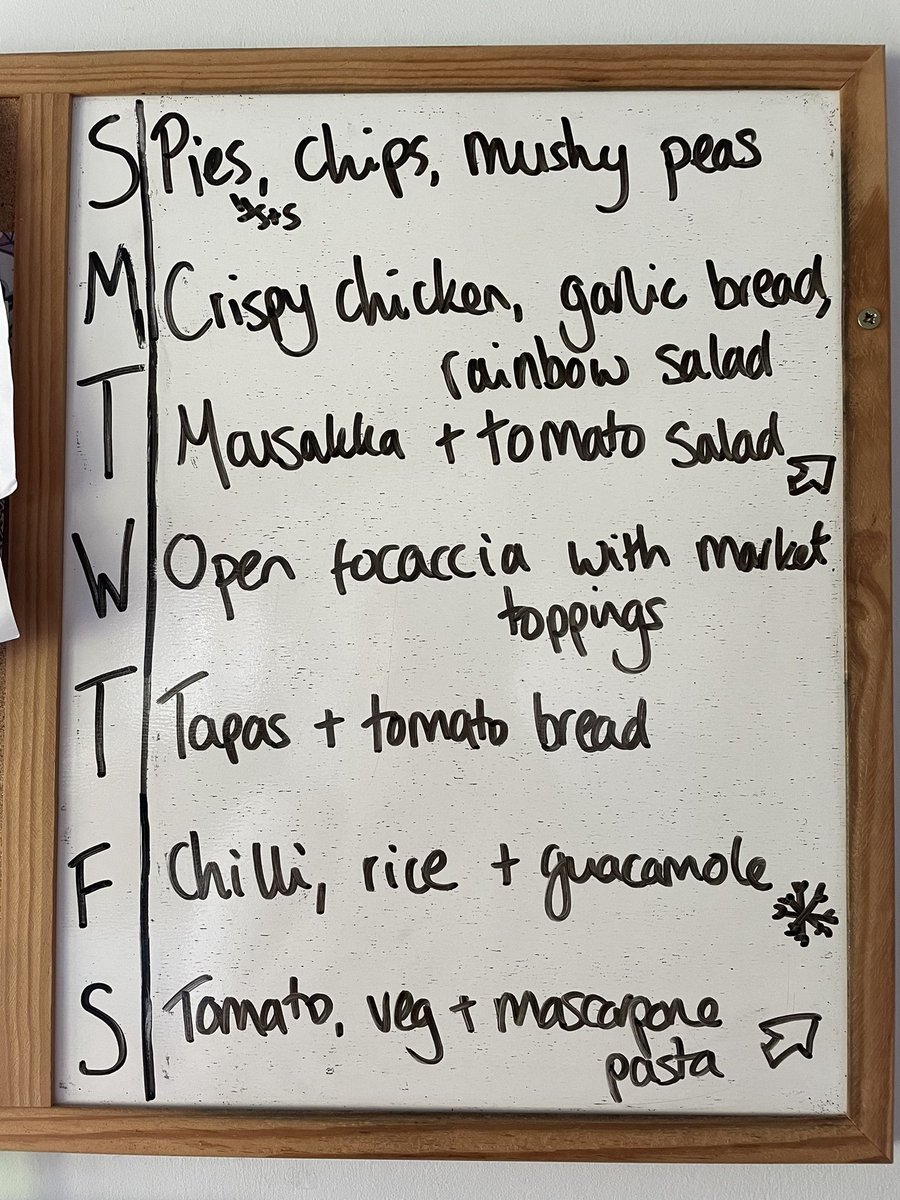 S Pies, chips, mushy peas
S+S
M Crispy chicken, garlic bread,
rainbow salad
T Mousakka + tomato salad
W Open focaccia with market
toppings
T Tapas + tomato bread
F Chilli, rice + guacamole
S Tomato, veg + mascarpone
pasta